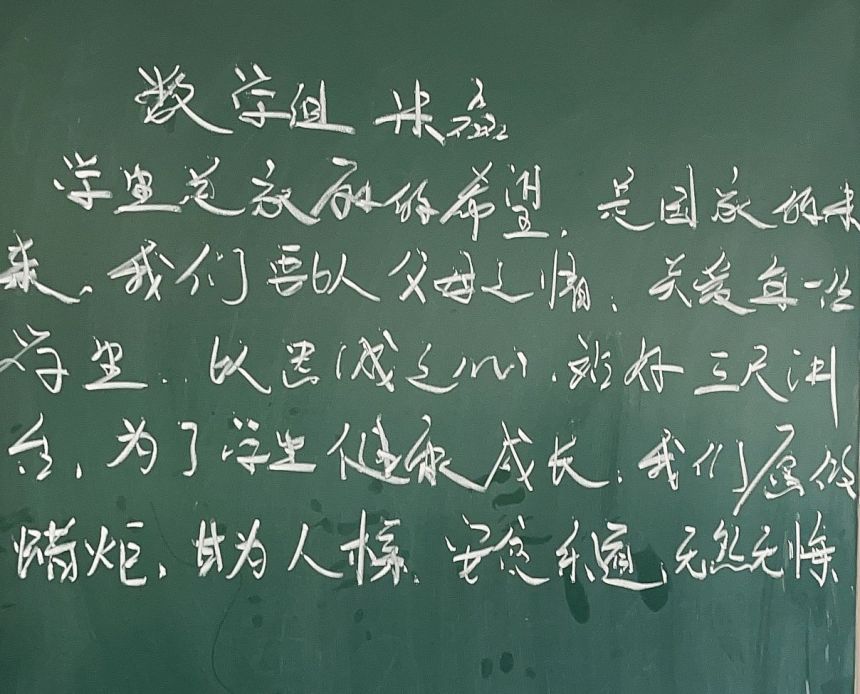 数学组 朱磊
学生是家庭的希望，是国家的未
来。我们要以父母之情，关爱每一位
学生，以忠诚之心，站好三尺讲
台，为了学生健康成长，我们愿做
蜡炬，甘为人梯，安贫乐道，无怨无悔